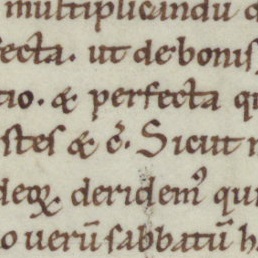 multiplicandū
fecta. ut de bonis
tio. & perfecta qu
stes & ē. Sicut n
deoꝝ deridemꝰ qui
o uerū sabbatū h